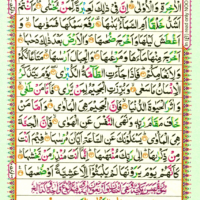 الْاٰخِرَةِ وَالْاُوْلٰى اِنَّ فِيْ ذٰلِكَ لَعِبْرَةً لِّمَنْ يَّخْشٰى ءَاَنْتُمْ
اَشَدُّ خَلْقًا اَمِ السَّمَآءُ بَنٰىهَا رَفَعَ سَمْكَهَا فَسَوّٰىهَا وَ
اَغْطَشَ لَيْلَهَا وَاَخْرَجَ ضُحٰىهَا وَالْاَرْضَ بَعْدَ ذٰلِكَ
دَحٰىهَا اَخْرَجَ مِنْهَا مَآءَهَا وَمَرْعٰىهَا وَالْجِبَالَ اَرْسٰىهَا مَتَاعًا
لَّكُمْ وَلِاَنْعَامِكُمْ فَاِذَا جَآءَتِ الطَّآمَّةُ الْكُبْرٰى يَوْمَ يَتَذَكَّرُ
الْاِنْسَانُ مَا سَعٰى وَبُرِّزَتِ الْجَحِيْمُ لِمَنْ يَّرٰى فَاَمَّا مَنْ طَغٰى
وَاٰثَرَ الْحَيٰوةَ الدُّنْيَا فَاِنَّ الْجَحِيْمَ هِيَ الْمَاْوٰى وَاَمَّا مَنْ
خَافَ مَقَامَ رَبِّهٖ وَنَهَى النَّفْسَ عَنِ الْهَوٰى فَاِنَّ الْجَنَّةَ
هِيَ الْمَاْوٰى يَسْـَٔلُوْنَكَ عَنِ السَّاعَةِ اَيَّانَ مُرْسٰىهَا فِيْمَ اَنْتَ
مِنْ ذِكْرٰىهَا اِلٰى رَبِّكَ مُنْتَهٰىهَا اِنَّمَآ اَنْتَ مُنْذِرُ مَنْ يَّخْشٰىهَا
كَاَنَّهُمْ يَوْمَ يَرَوْنَهَا لَمْ يَلْبَثُوْٓا اِلَّا عَشِيَّةً اَوْ ضُحٰىهَا